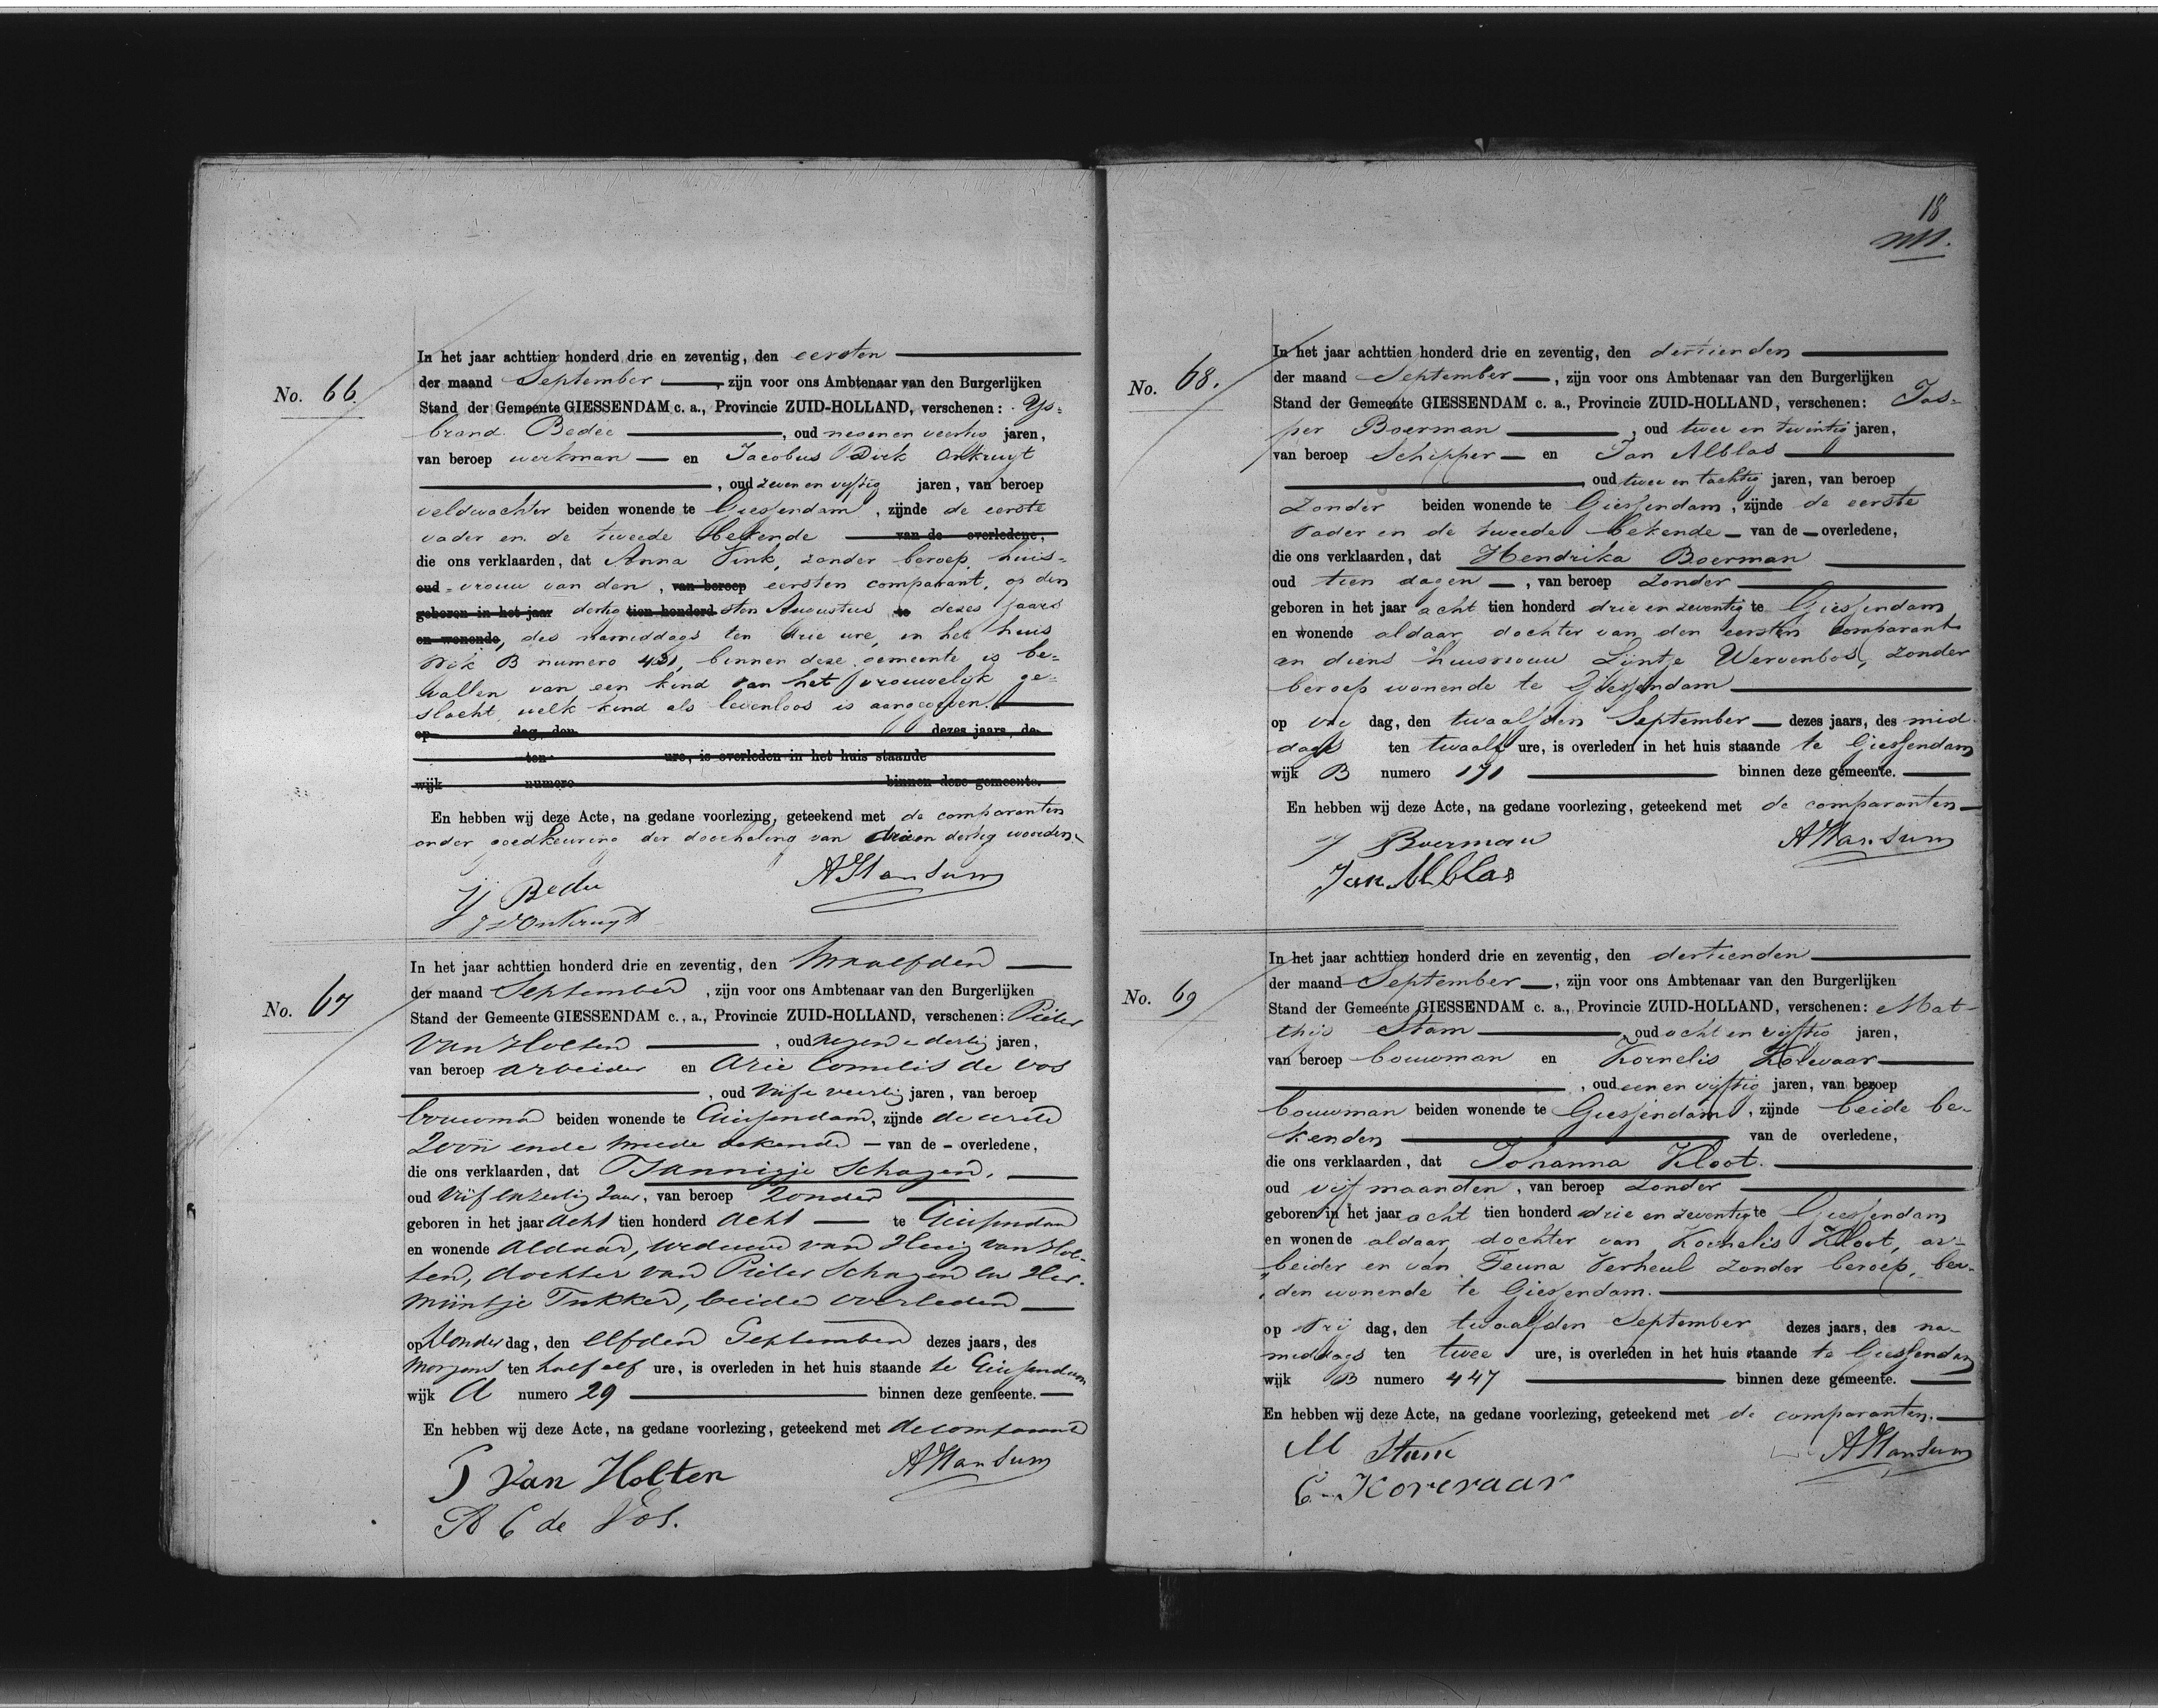 No. 66.
In het jaar achttien honderd drie en zeventig, den eersten
der maand September, zijn voor ons Ambtenaar van den Burgerlijken
Stand der Gemeente GIESSENDAM c. a., Provincie ZUID-HOLLAND, verschenen: Ys=
brand Bedee, oud negen en veertig jaren,
van beroep werkman en Jacobus Dirk Onkruyt
, oud zeven en vyftig jaren, van beroep
veldwachter beiden wonende te Giessendam, zijnde de eerste
vader en de tweede bekende van de overledene,
die ons verklaarden, dat Anna Vink, zonder beroep, huis=
oud = vrouw van den, van beroep eersten comparant, op den
geboren in het jaar dertig tien honderd sten Augustus te dezes jaars
en wonende, des namiddags ten drie ure, in het huis
Wijk B numero 431, binnen deze gemeente is be=
vallen van een kind van het vrouwelyk ge=
slacht, welk kind als levenloos is aangegeven.
op dag, den dezes jaars, des
ten ure, is overleden in het huis staande
wijk numero binnen deze gemeente.
En hebben wij deze Acte, na gedane voorlezing, geteekend met de comparanten
onder goedkeuring der doorhaling van drieen dertig woorden.
Y Bedee
J D Onkruyt
No. 67
In het jaar achttien honderd drie en zeventig, den twaalfden
der maand September, zijn voor ons Ambtenaar van den Burgerlijken
Stand der Gemeente GIESSENDAM c., a., Provincie ZUID-HOLLAND, verschenen: Pieter
van Holten, oud negen e dertig jaren,
van beroep arbeider en Arie Cornelis de Vos
, oud vijf e veertig jaren, van beroep
bouwman beiden wonende te Giessendam, zijnde de eerste
zoon en de tweede bekende van de overledene,
die ons verklaarden, dat Jannigje Schagen,
oud vijf en zestig Jaar, van beroep zonder
geboren in het jaar acht tien honderd acht te Giessendam
en wonende aldaar, weduwe van Huig van Hol=
ten, dochter van Pieter Schagen en Her=
mijntje Tukker, beiden overleden
op Donder dag, den elfden September dezes jaars, des
morgens ten half elf ure, is overleden in het huis staande te Giessendam
wijk A numero 29 binnen deze gemeente.
En hebben wij deze Acte, na gedane voorlezing, geteekend met de comparanten
P van Holten
A C de Vos.
18
No. 68.
In het jaar achttien honderd drie en zeventig, den dertienden
der maand September, zijn voor ons Ambtenaar van den Burgerlijken
Stand der Gemeente GIESSENDAM c. a., Provincie ZUID-HOLLAND, verschenen: Jas=
per Boerman, oud twee en twintig jaren,
van beroep Schipper en Jan Alblas
oud twee en tachtig jaren, van beroep
zonder beiden wonende te Giessendam, zijnde de eerste
vader en de tweede bekende van de overledene,
die ons verklaarden, dat Hendrika Boerman
oud tien dagen, van beroep zonder
geboren in het jaar acht tien honderd drie en zeventig te Giessendam
en wonende aldaar, dochter van den eersten comparant
en diens huisvrouw Lijntje Wervenbos, zonder
beroep wonende te Giessendam
op vrij dag, den twaalfden September dezes jaars, des mid
dags ten twaalf ure, is overleden in het huis staande te Giessendam
wijk B numero 171 binnen deze gemeente.
En hebben wij deze Acte, na gedane voorlezing, geteekend met de comparanten
J Boerman
Jan Alblas
No. 69
In het jaar achttien honderd drie en zeventig, den dertienden
der maand September, zijn voor ons Ambtenaar van den Burgerlijken
Stand der Gemeente GIESSENDAM c. a., Provincie ZUID-HOLLAND, verschenen: Mat-
thijs Stam, oud acht en vijftig jaren,
van beroep bouwman en Kornelis Korevaar
, oud een en vijftig jaren, van beroep
bouwman beiden wonende te Giessendam, zijnde beide be-
kenden van de overledene,
die ons verklaarden, dat Johanna Kloot.
oud vijf maanden, van beroep zonder
geboren in het jaar acht tien honderd drie en zeventig te Giessendam
en wonende aldaar, dochter van Kornelis Kloot, ar-
beider en van Teuna Verheul zonder beroep, bei-
den wonende te Giessendam.
op vrij dag, den twaalfden September dezes jaars, des na-
middags ten twee ure, is overleden in het huis staande te Giessendam
wijk B numero 447 binnen deze gemeente.
En hebben wij deze Acte, na gedane voorlezing, geteekend met de comparanten.
M Stam
C. Korevaar